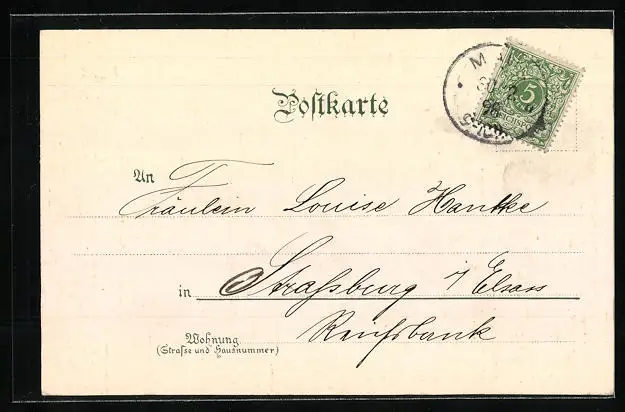 Postkarte
5
REICHSPOST
An
Fräulein Louise Hantke
in Straſsburg i/Elsass
Reichsbank
Wohnung
(Straſse und Hausnummer)